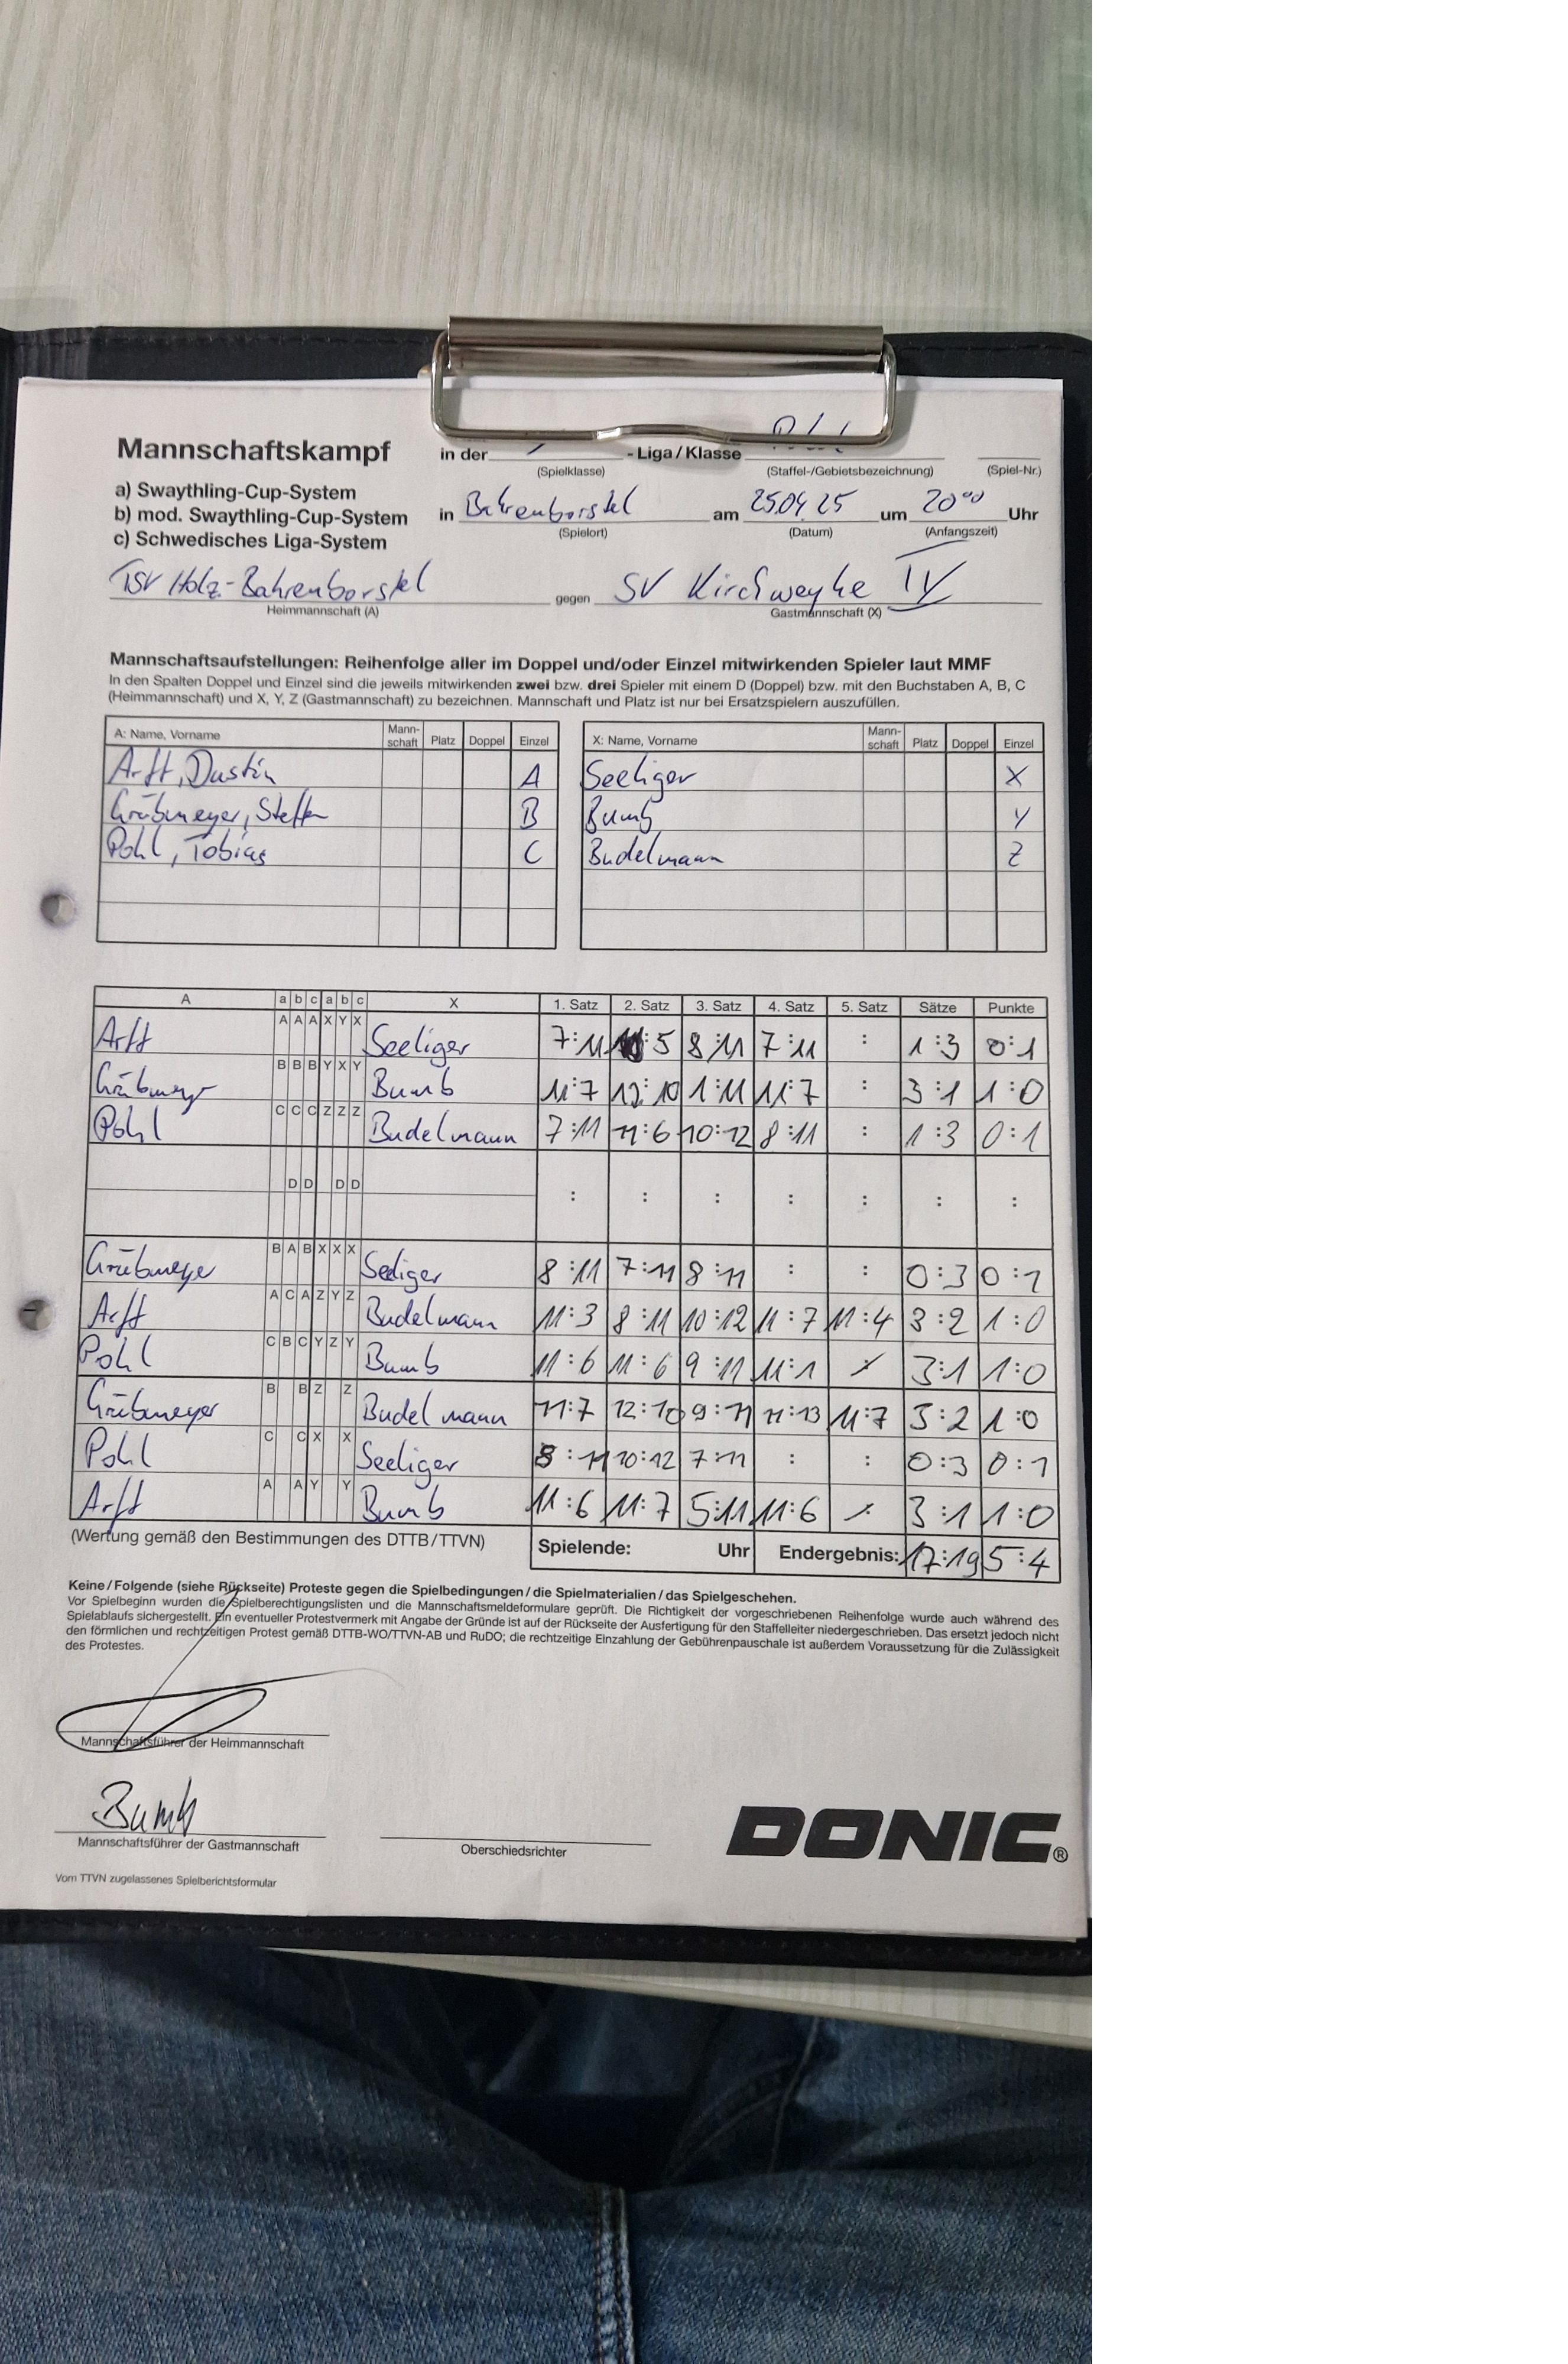 Mannschaftskampf in der - Liga / Klasse
(Spielklasse) (Staffel-/Gebietsbezeichnung) (Spiel-Nr.)
a) Swaythling-Cup-System
b) mod. Swaythling-Cup-System in Bahrenborstel am 25.04.25 um 20⁰⁰ Uhr
(Spielort) (Datum) (Anfangszeit)
c) Schwedisches Liga-System
TSV Holz.-Bahrenborstel gegen SV Kirchweyhe IV
Heimmannschaft (A) Gastmannschaft (X)
Mannschaftsaufstellungen: Reihenfolge aller im Doppel und/oder Einzel mitwirkenden Spieler laut MMF
In den Spalten Doppel und Einzel sind die jeweils mitwirkenden zwei bzw. drei Spieler mit einem D (Doppel) bzw. mit den Buchstaben A, B, C
(Heimmannschaft) und X, Y, Z (Gastmannschaft) zu bezeichnen. Mannschaft und Platz ist nur bei Ersatzspielern auszufüllen.
A: Name, Vorname Mann-schaft Platz Doppel Einzel X: Name, Vorname Mann-schaft Platz Doppel Einzel
Arft, Dustin A Seeliger X
Gräbmeyer, Steffen B Bumb Y
Pohl, Tobias C Budelmann Z
A a b c a b c X 1. Satz 2. Satz 3. Satz 4. Satz 5. Satz Sätze Punkte
Arft A A A X Y X Seeliger 7:11 :5 8:11 7:11 : 1:3 0:1
Gräbmeyr B B B Y X Y Bumb 11:7 12:10 1:11 11:7 : 3:1 1:0
Pohl C C C Z Z Z Budelmann 7:11 11:6 10:12 8:11 : 1:3 0:1
D D D D : : : : : : :
Gräbmeyer B A B X X X Seeliger 8:11 7:11 8:11 : : 0:3 0:1
Arft A C A Z Y Z Budelmann 11:3 8:11 10:12 11:7 11:4 3:2 1:0
Pohl C B C Y Z Y Bumb 11:6 11:6 9:11 11:1 : 3:1 1:0
Gräbmeyer B B Z Z Budelmann 11:7 12:10 9:11 11:13 11:7 3:2 1:0
Pohl C C X X Seeliger 8:11 10:12 7:11 : : 0:3 0:1
Arft A A Y Y Bumb 11:6 11:7 5:11 11:6 : 3:1 1:0
(Wertung gemäß den Bestimmungen des DTTB/TTVN) Spielende: Uhr Endergebnis: 17:19 5:4
Keine / Folgende (siehe Rückseite) Proteste gegen die Spielbedingungen / die Spielmaterialien / das Spielgeschehen.
Vor Spielbeginn wurden die Spielberechtigungslisten und die Mannschaftsmeldeformulare geprüft. Die Richtigkeit der vorgeschriebenen Reihenfolge wurde auch während des
Spielablaufs sichergestellt. Ein eventueller Protestvermerk mit Angabe der Gründe ist auf der Rückseite der Ausfertigung für den Staffelleiter niedergeschrieben. Das ersetzt jedoch nicht
den förmlichen und rechtzeitigen Protest gemäß DTTB-WO/TTVN-AB und RuDO; die rechtzeitige Einzahlung der Gebührenpauschale ist außerdem Voraussetzung für die Zulässigkeit
des Protestes.
Mannschaftsführer der Heimmannschaft
Bumb
Mannschaftsführer der Gastmannschaft Oberschiedsrichter
DONIC®
Vom TTVN zugelassenes Spielberichtsformular